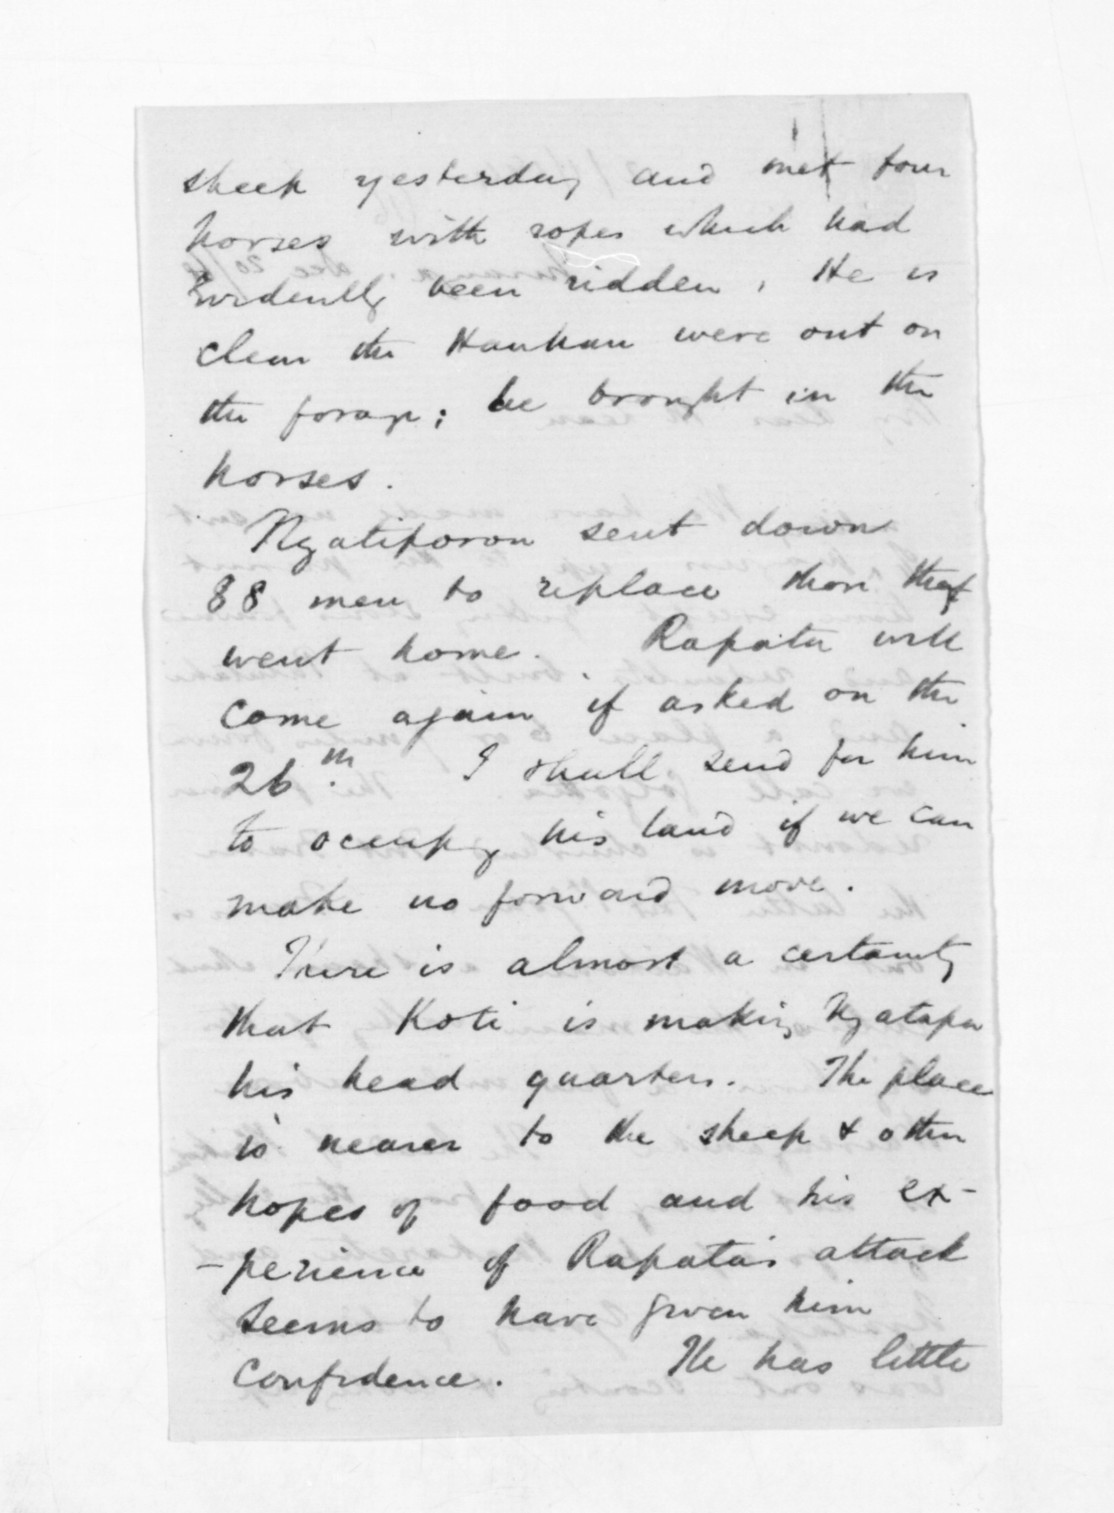 sheep yesterday and met four
horses with ropes which had
evidently been ridden. He is
clear the Hauhau were out on
the forage; he brought in the
horses.
Ngatiporou sent down
88 men to replace those that
went home. Rapata will
come again if asked on the
26th. I shall send for him
to occupy his land if we can
make no forward move.
There is almost a certainty
that Koti is making Ngatapa
his head quarters. The place
is nearer to the sheep & other
hopes of food and his ex-
-perience of Rapata's attack
seems to have given him
confidence. He has little